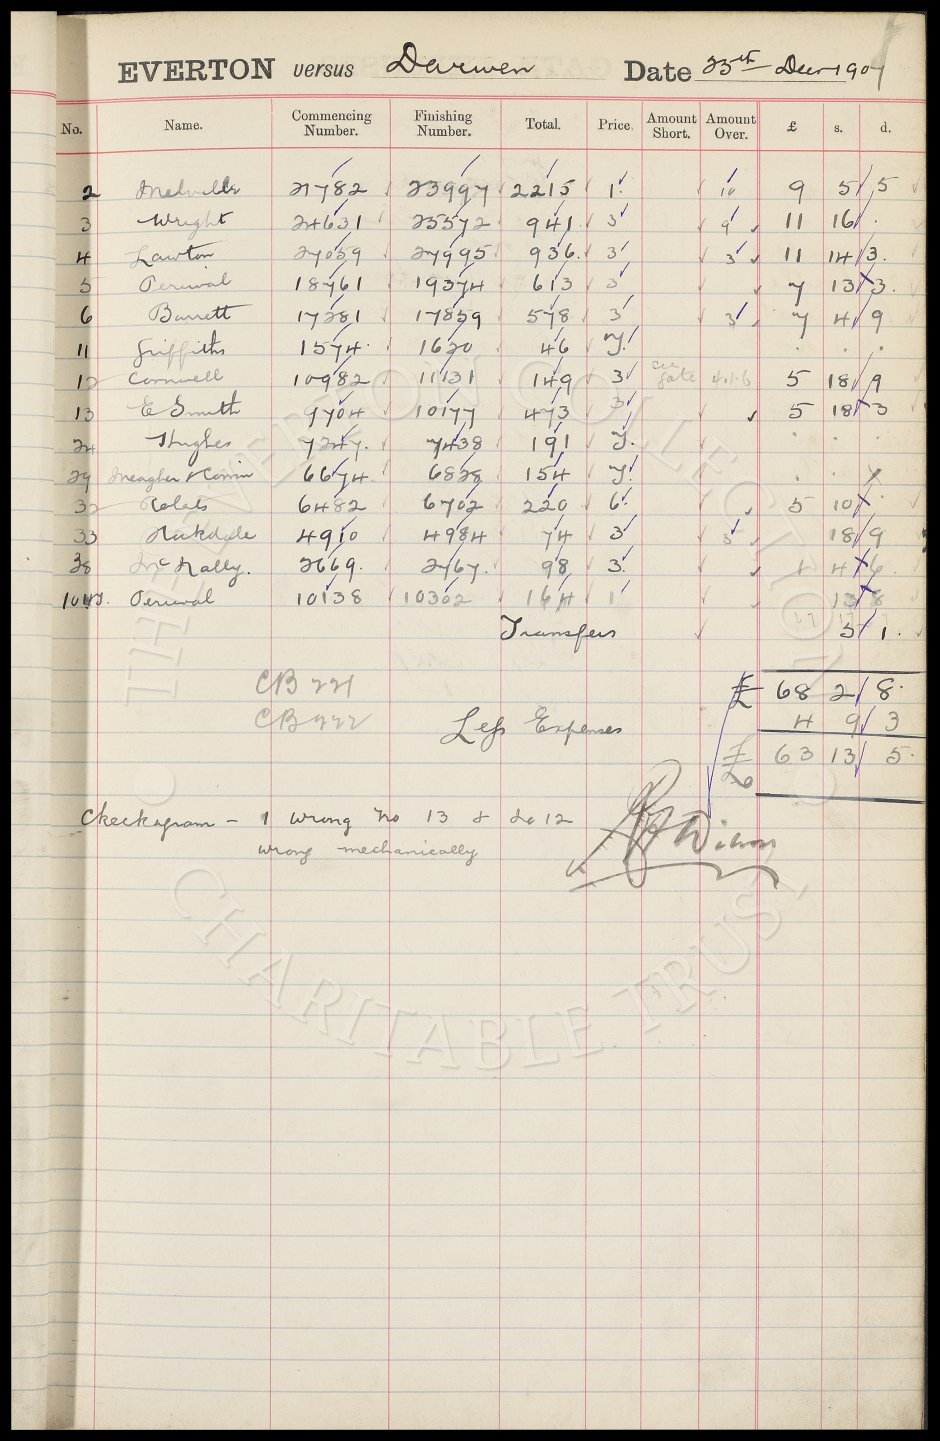 EVERTON versus Darwen Date 25th Decr 1907
No. Name. Commencing Number. Finishing Number. Total. Price Amount Short. Amount Over. £ s. d.
2 Melville 21782 23997 2215 1 10 9 5 5
3 Wright 24631 25572 941 3 9 11 16 .
4 Lawton 27059 27995 936 3 3 11 14 3
5 Percival 18761 19374 613 3 7 13 3
6 Barrett 17281 17859 578 3 3 7 4 9
11 Griffiths 1574 1620 46 . . .
12 Cornwell 10982 11131 149 3 gate 4.1.6 5 18 9
13 E Smith 9704 10177 473 3 5 18 3
24 Hughes 7247 7438 191 . . .
29 Meagher & 6674 6828 154 . .
32 6482 6702 220 6 5 10 .
33 Rokdale 4910 4984 74 3 3 18 9
38 McNally. 2669 2767 98 3 1 4 6
Percival 10138 10302 164 1 13 8
Transfers 5 1
CB 221 £ 68 2 8
CB 222 Less Expenses 4 9 3
£ 63 13 5
Checkagram - 1 wrong No 13 & do 12
wrong mechanically
THE EVERTON COLLECTION
CHARITABLE TRUST